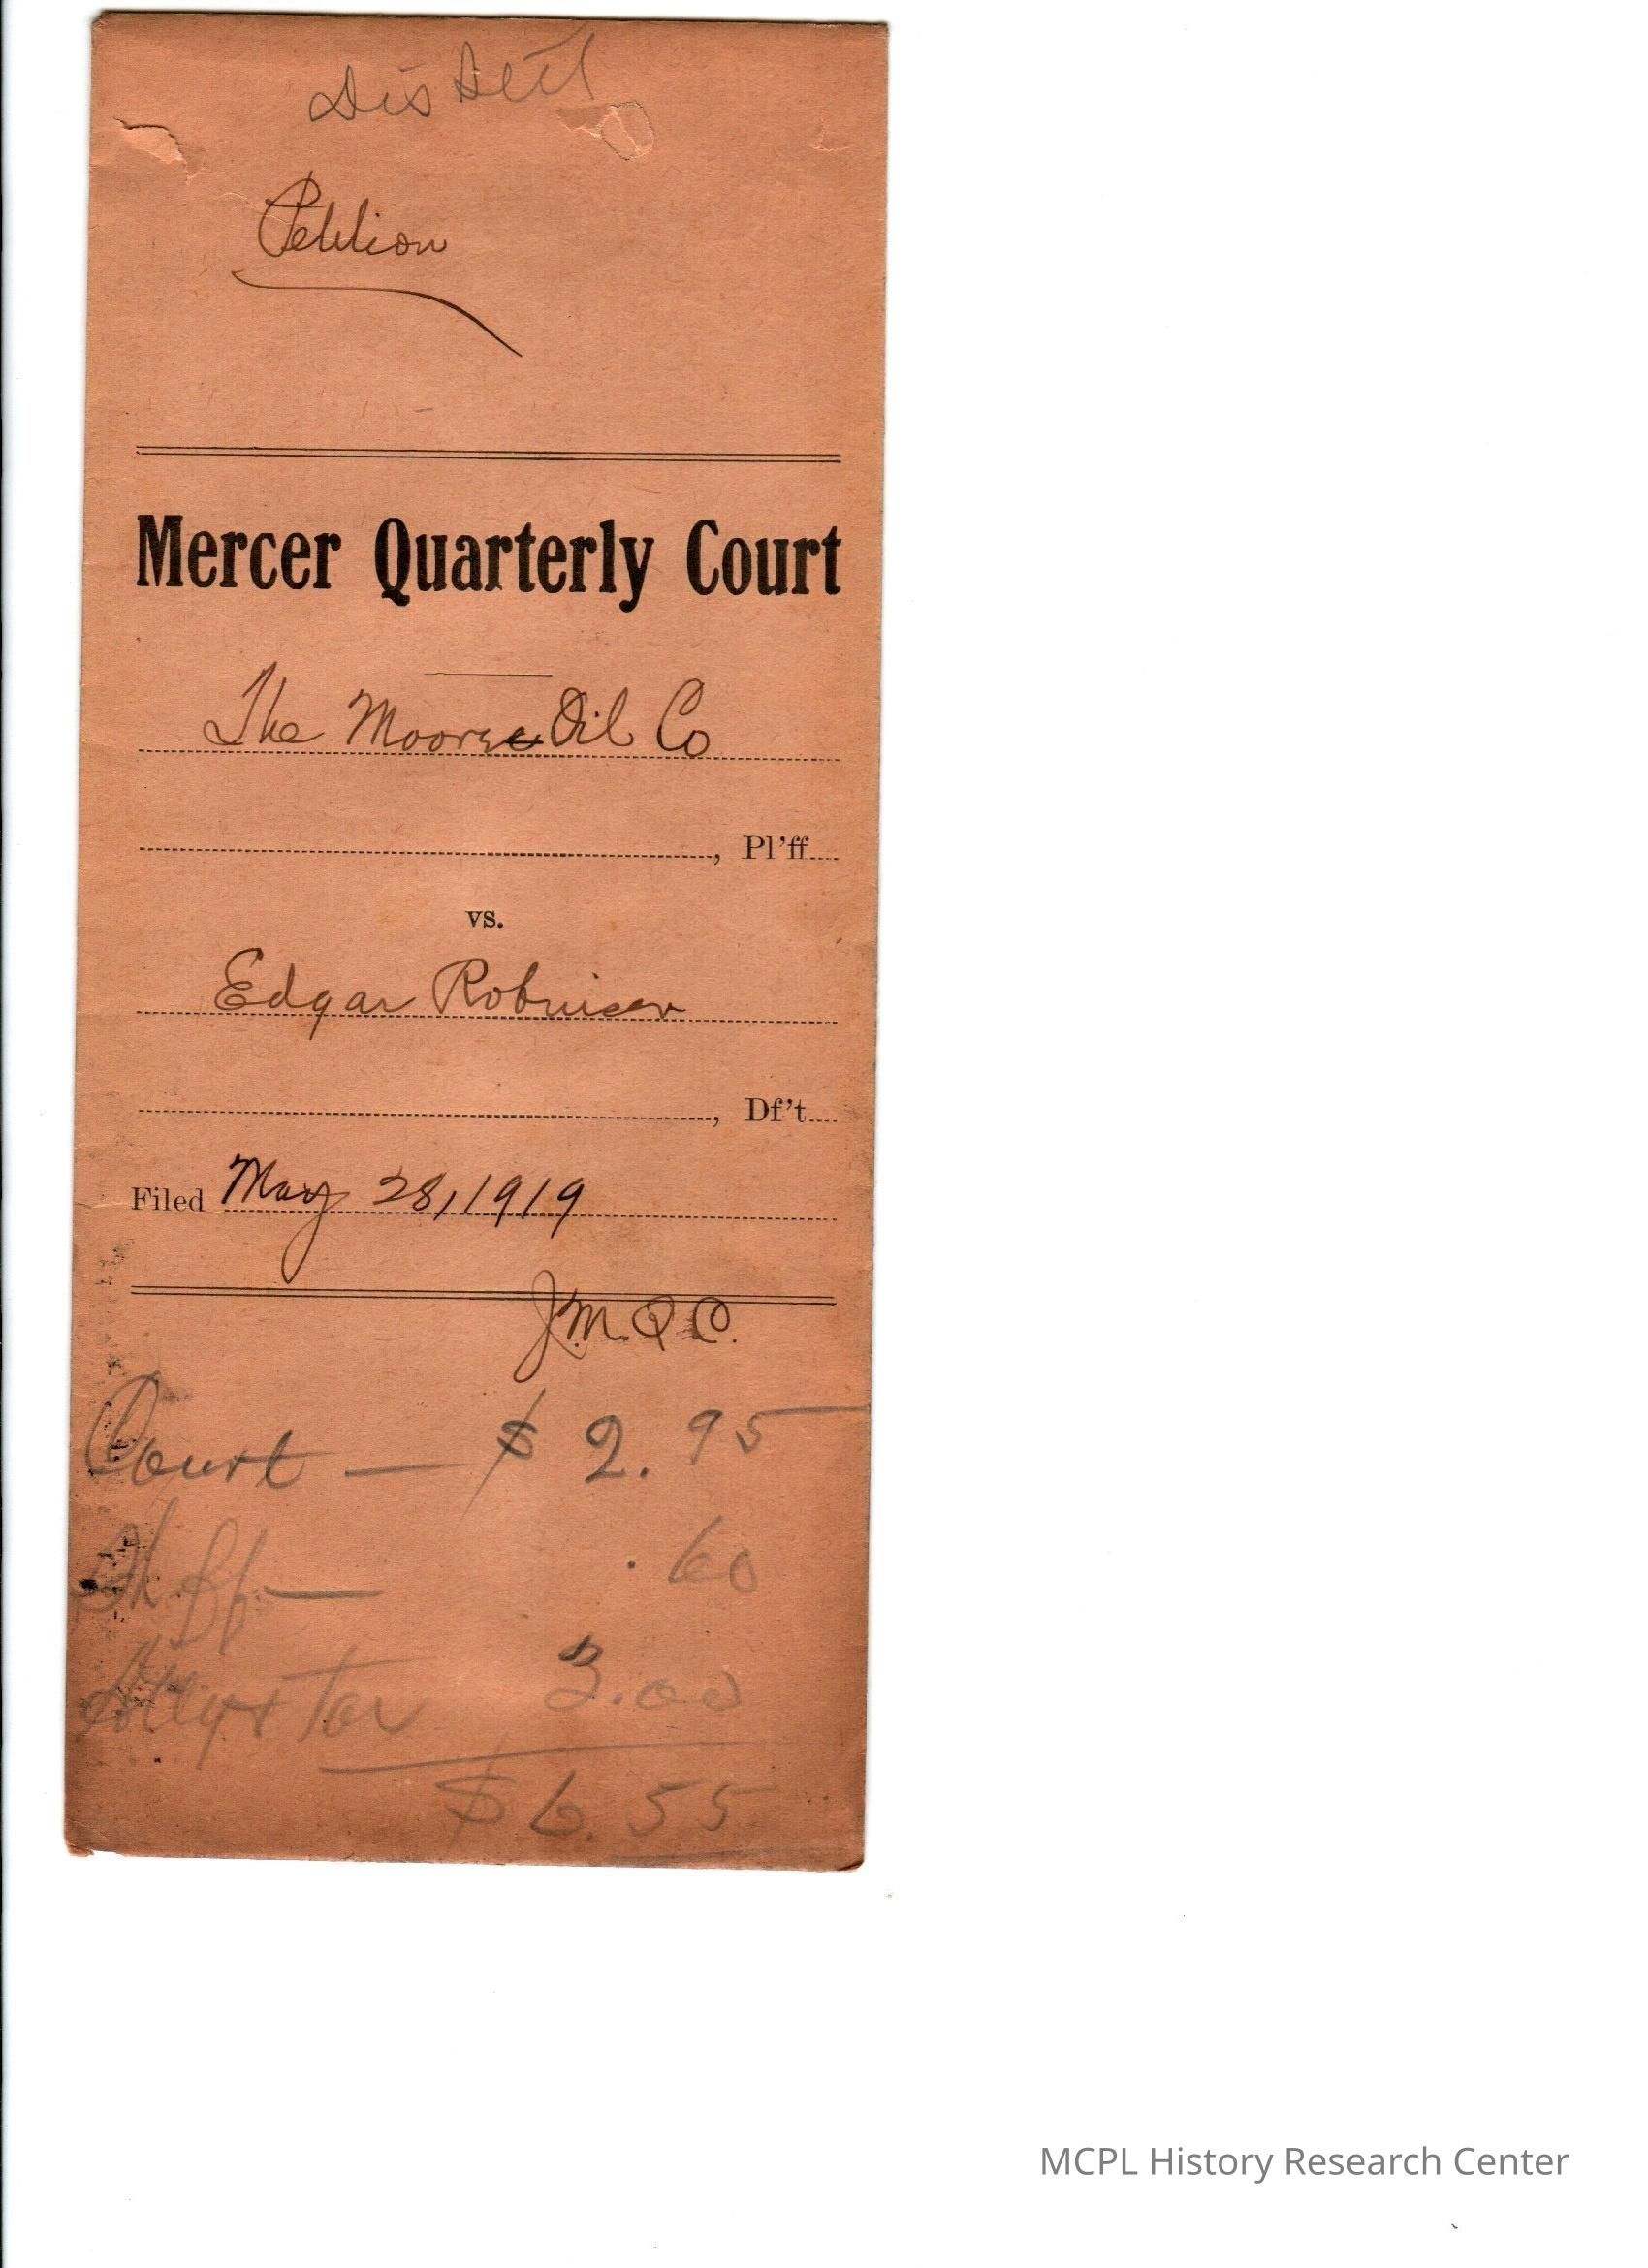 Dis Setl
Petition
Mercer Quarterly Court
The Moore Oil Co
, Pl'ff
vs.
Edgar Robinson
, Df't
Filed May 28, 1919
J.M.Q.C.
Court — $ 2.95
Shff — .60
Atty & Tax 3.00
$ 6.55
MCPL History Research Center